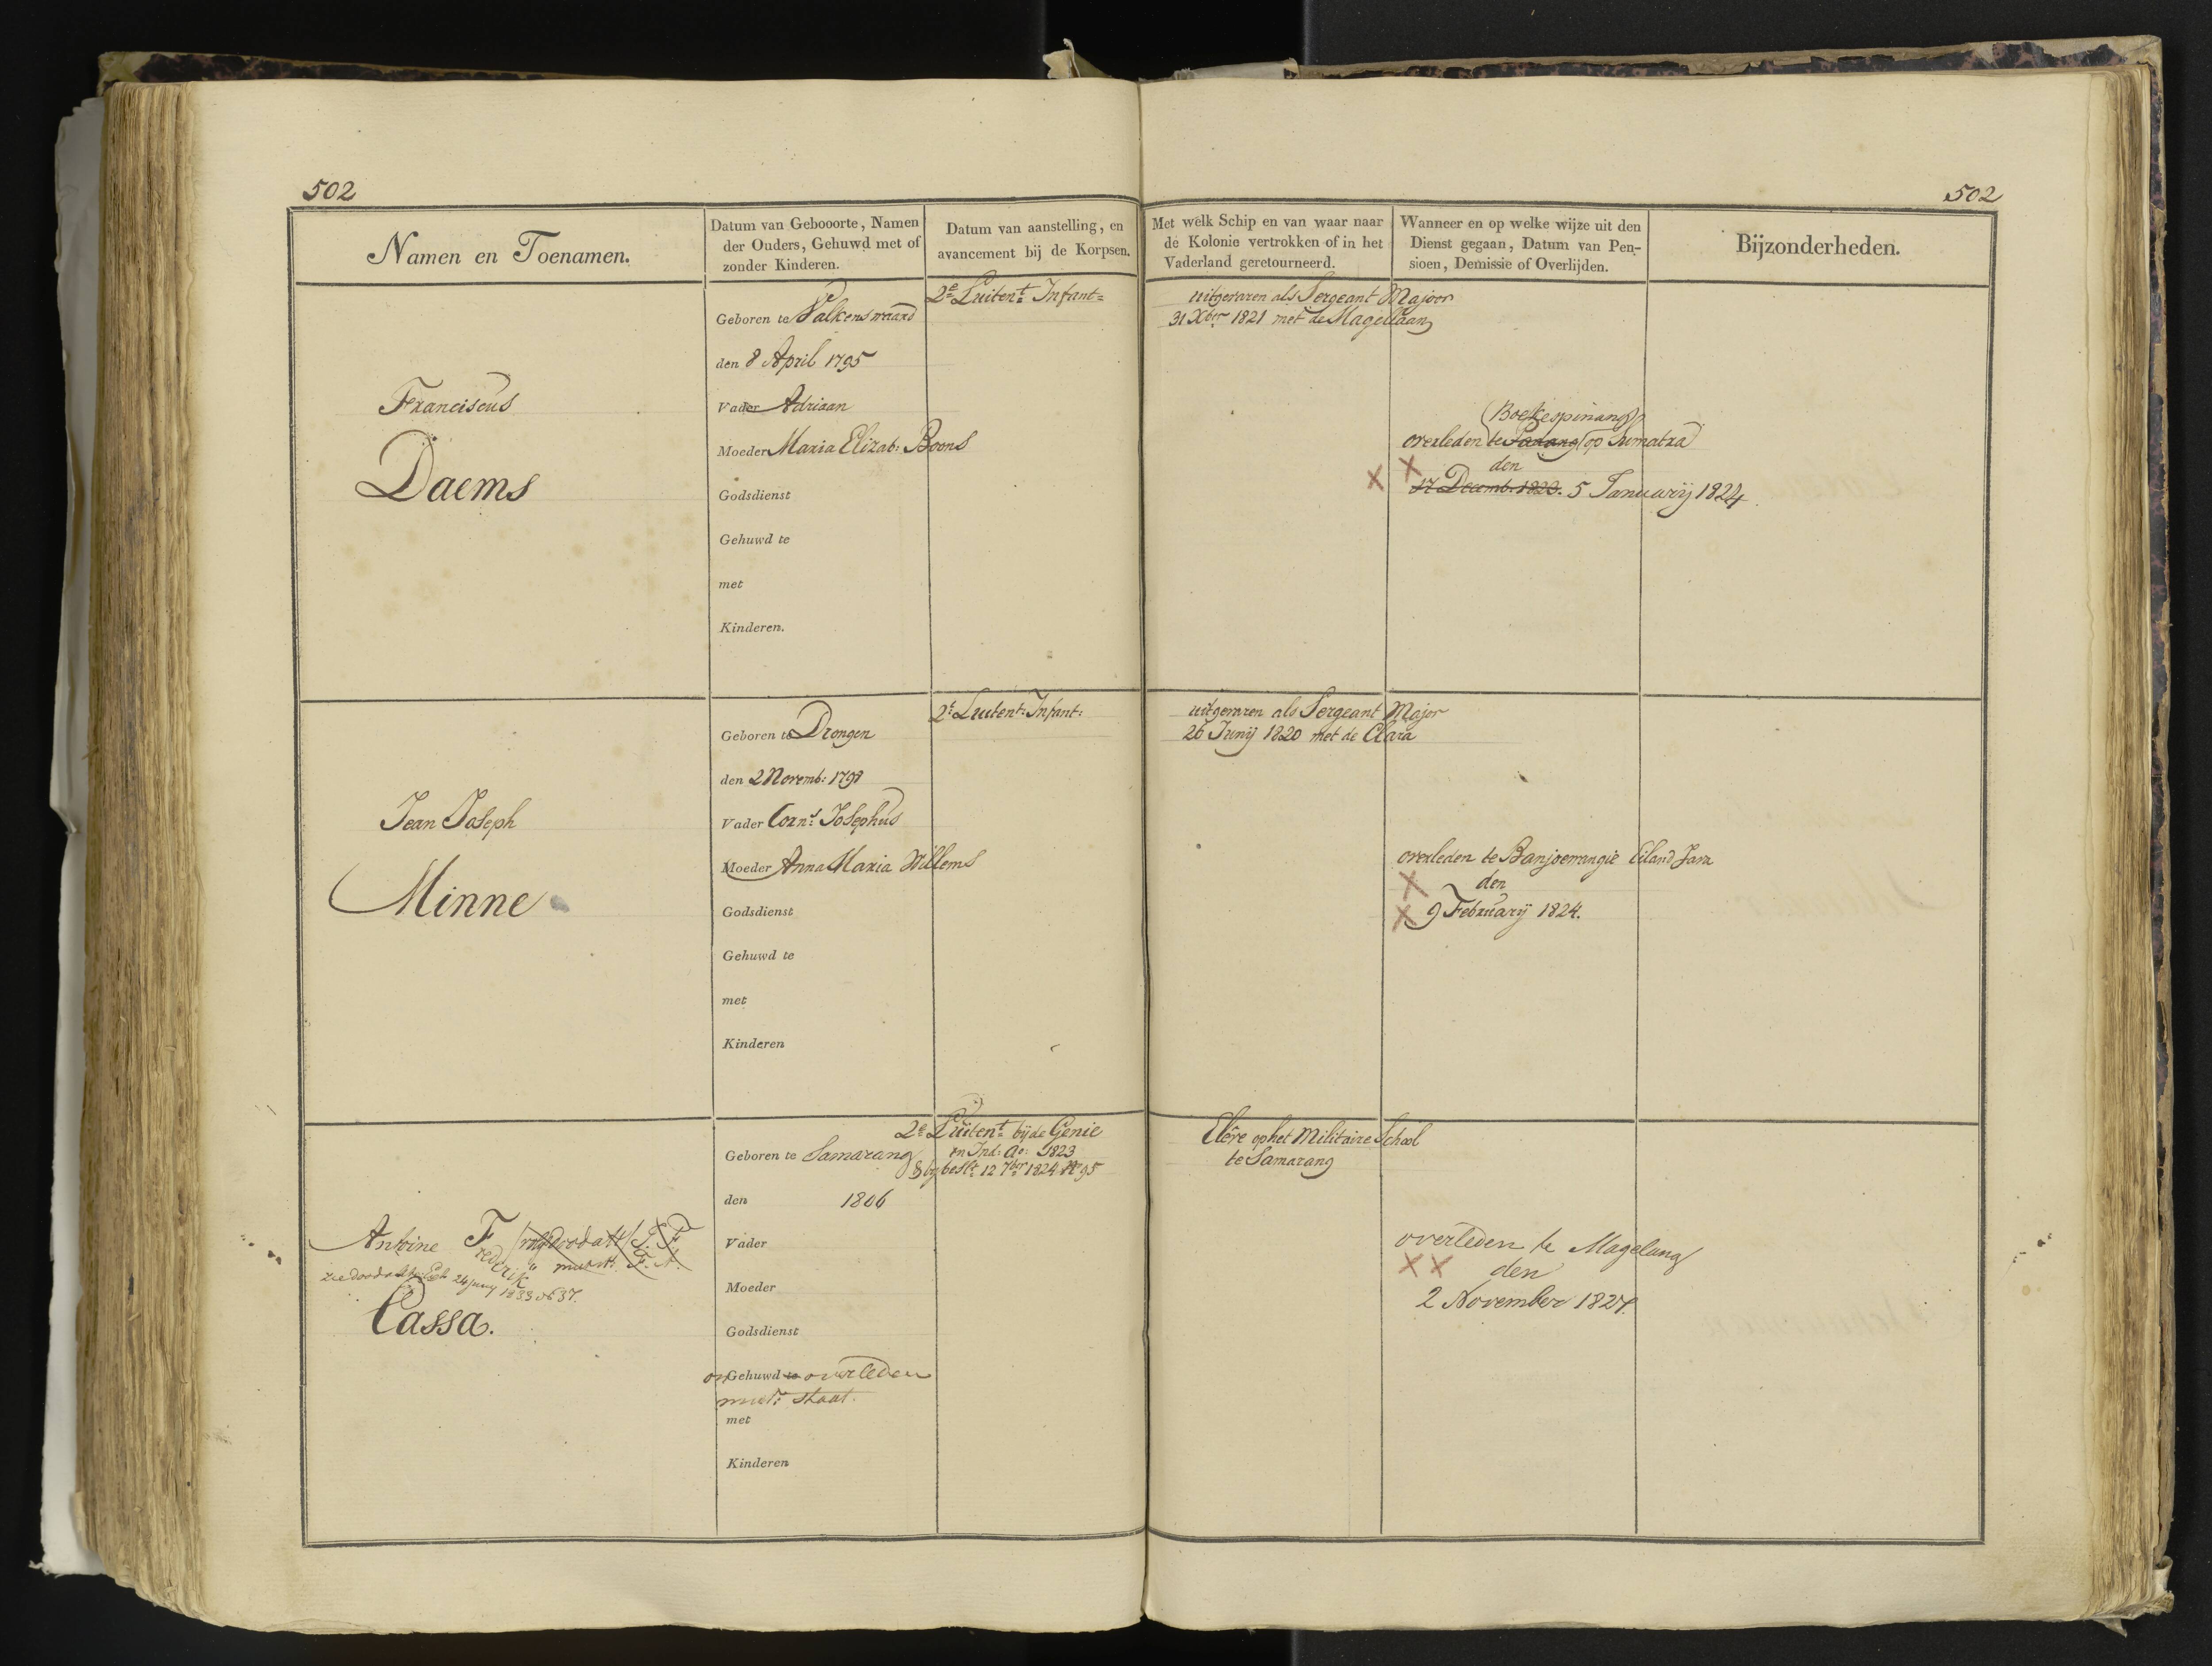 502
502
Namen en Toenamen.
Datum van Gebooorte, Namen
der Ouders, Gehuwd met of
zonder Kinderen.
Datum van aanstelling, en
avancement bij de Korpsen.
Met welk Schip en van waar naar
de Kolonie vertrokken of in het
Vaderland geretourneerd.
Wanneer en op welke wijze uit den
Dienst gegaan, Datum van Pen-
sioen, Demissie of Overlijden.
Bijzonderheden.
Franciscus
Daems
Geboren te Valkenswaard
den 8 April 1795
Vader Adriaan
Moeder Maria Elizab: Boons
Godsdienst
Gehuwd te
met
Kinderen.
2e Luitent Infant=
uitgevaren als Sergeant Majoor
31 Xber 1821 met de Magellaan
(Boekepinang)
overleden te Padang op Sumatra
den
17 Decemb. 1823. 5 Januarij 1824
Jean Joseph
Minne
Geboren te Drongen
den 2 Novemb: 1798
Vader Corns: Josephus
Moeder Anna Maria Willems
Godsdienst
Gehuwd te
met
Kinderen
2e Luitent: Infant:
uitgevaren als Sergeant Major
26 Junij 1820 met de Clara
overleden te Banjoewangie Eiland Java
den
9 Februarij 1824.
Antoine Frederik
zie doodakte 24 juny 1833 No 37.
Cassa.
Geboren te Samarang
den 1806
Vader
Moeder
Godsdienst
onGehuwd te overleden
met
Kinderen
2e Luitent bij de Genie
in Ind: Ao: 1823
bij beslt 12 7ber 1824 No 95
Elêve op het Militaire School
te Samarang
overleden te Magelang
den
2 November 1827.